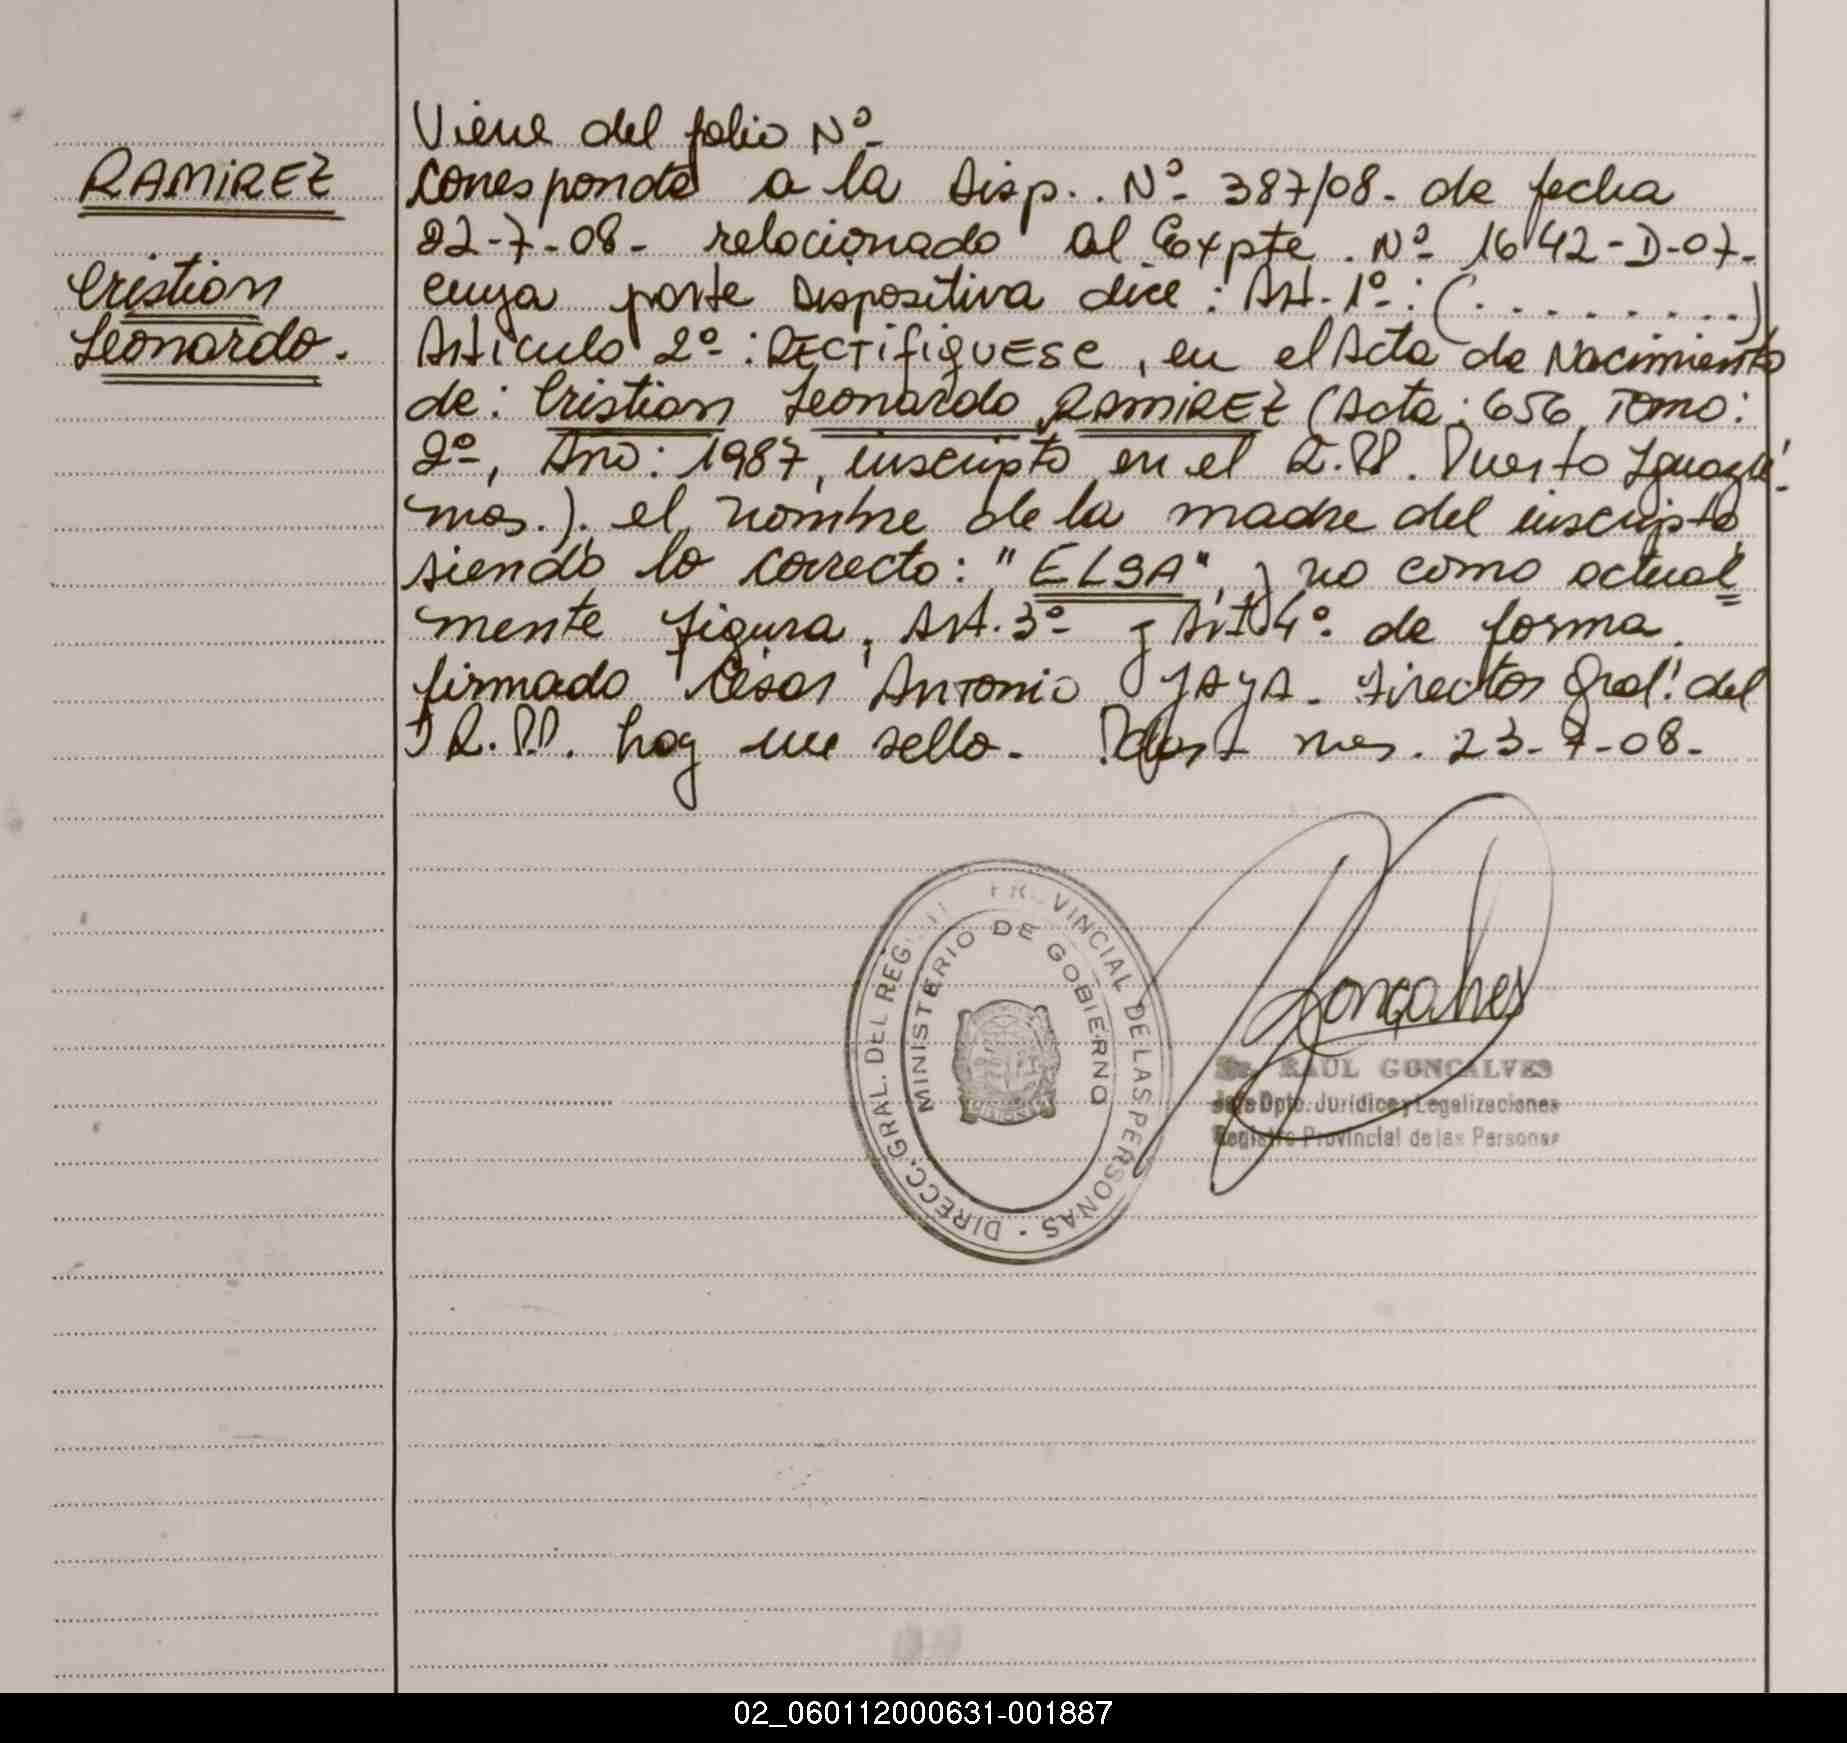 RAMIREZ
Cristian
Leonardo.
Viene del folio Nº
Corresponde a la Disp. Nº 387/08- de fecha
22-7-08- relacionado al Expte. Nº 1642-D-07-
cuya parte Dispositiva dice: Art. 1º: (. . . . . . . . .)
Artículo 2º: RECTIFIQUESE, en el Acta de Nacimiento
de: Cristian Leonardo RAMIREZ (Acta: 656, Tomo:
2º, Año: 1987, inscripto en el R.PP. Puerto Iguazú-
mnes.). el nombre de la madre del inscripto,
siendo lo correcto: "ELSA", y no como actual
mente figura, Art. 3º y Art 4º de forma.
firmado César Antonio JAYA. Director Gral. del
R.PP. hay un sello- Pdas- mnes. 23-7-08-
DIRECC. GRAL. DEL REG PROVINCIAL DE LAS PERSONAS -
MINISTERIO DE GOBIERNO
Goncalves
Dr. RAUL GONCALVES
Jefe Dpto. Jurídico y Legalizaciones
Registro Provincial de las Personas
02_060112000631-001887